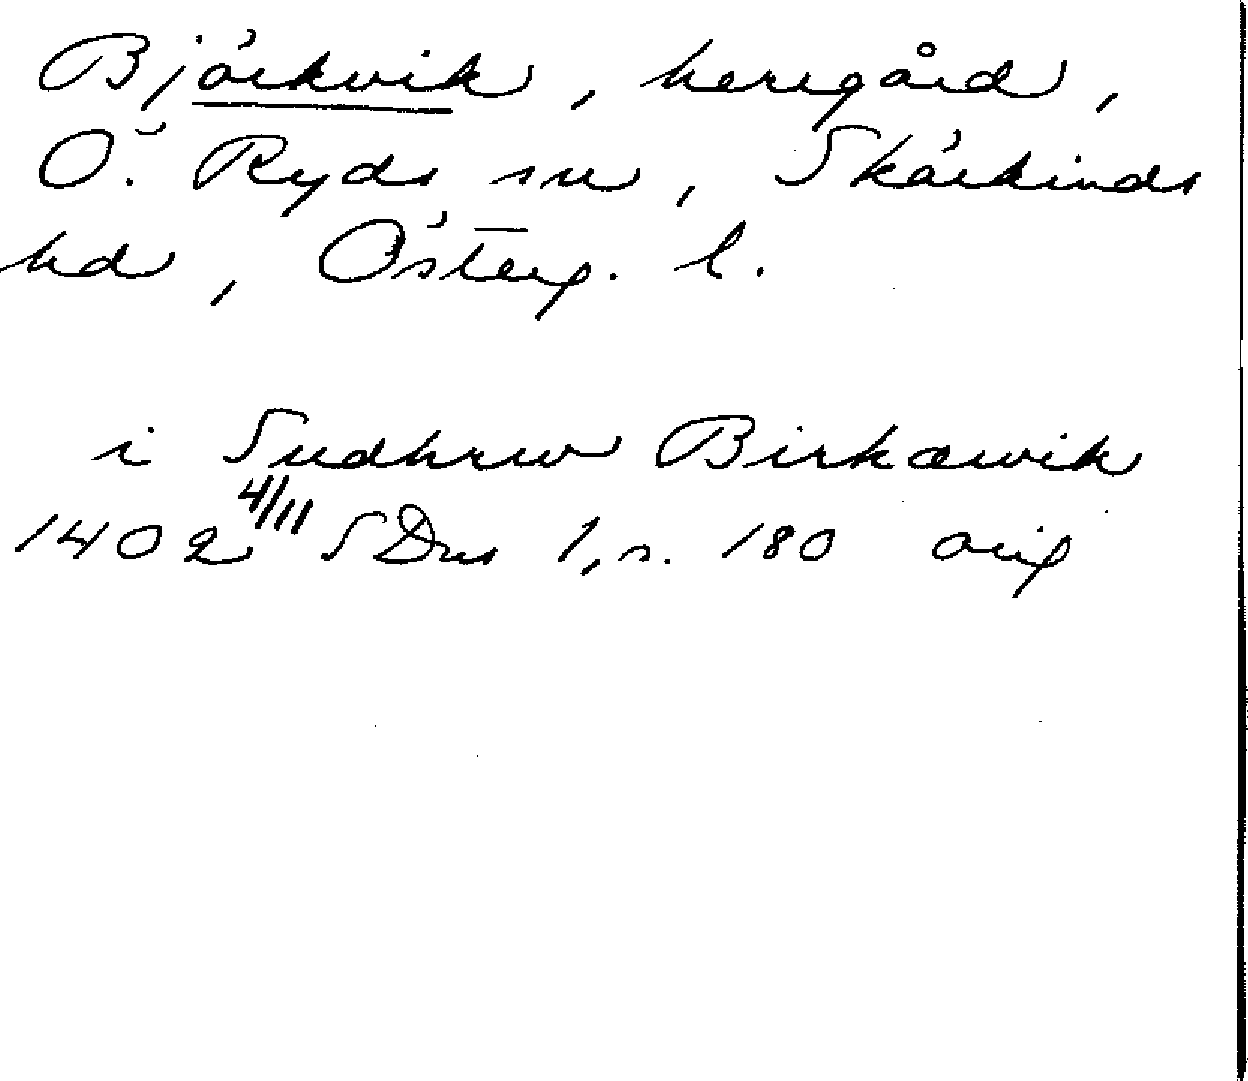 Björkvik, herrgård,
Ö. Ryds sn, Skärkinds
hd, Österg. l.
i Sudhrw Birkæwik
1402 4/11 SDns 1, s. 180 orig